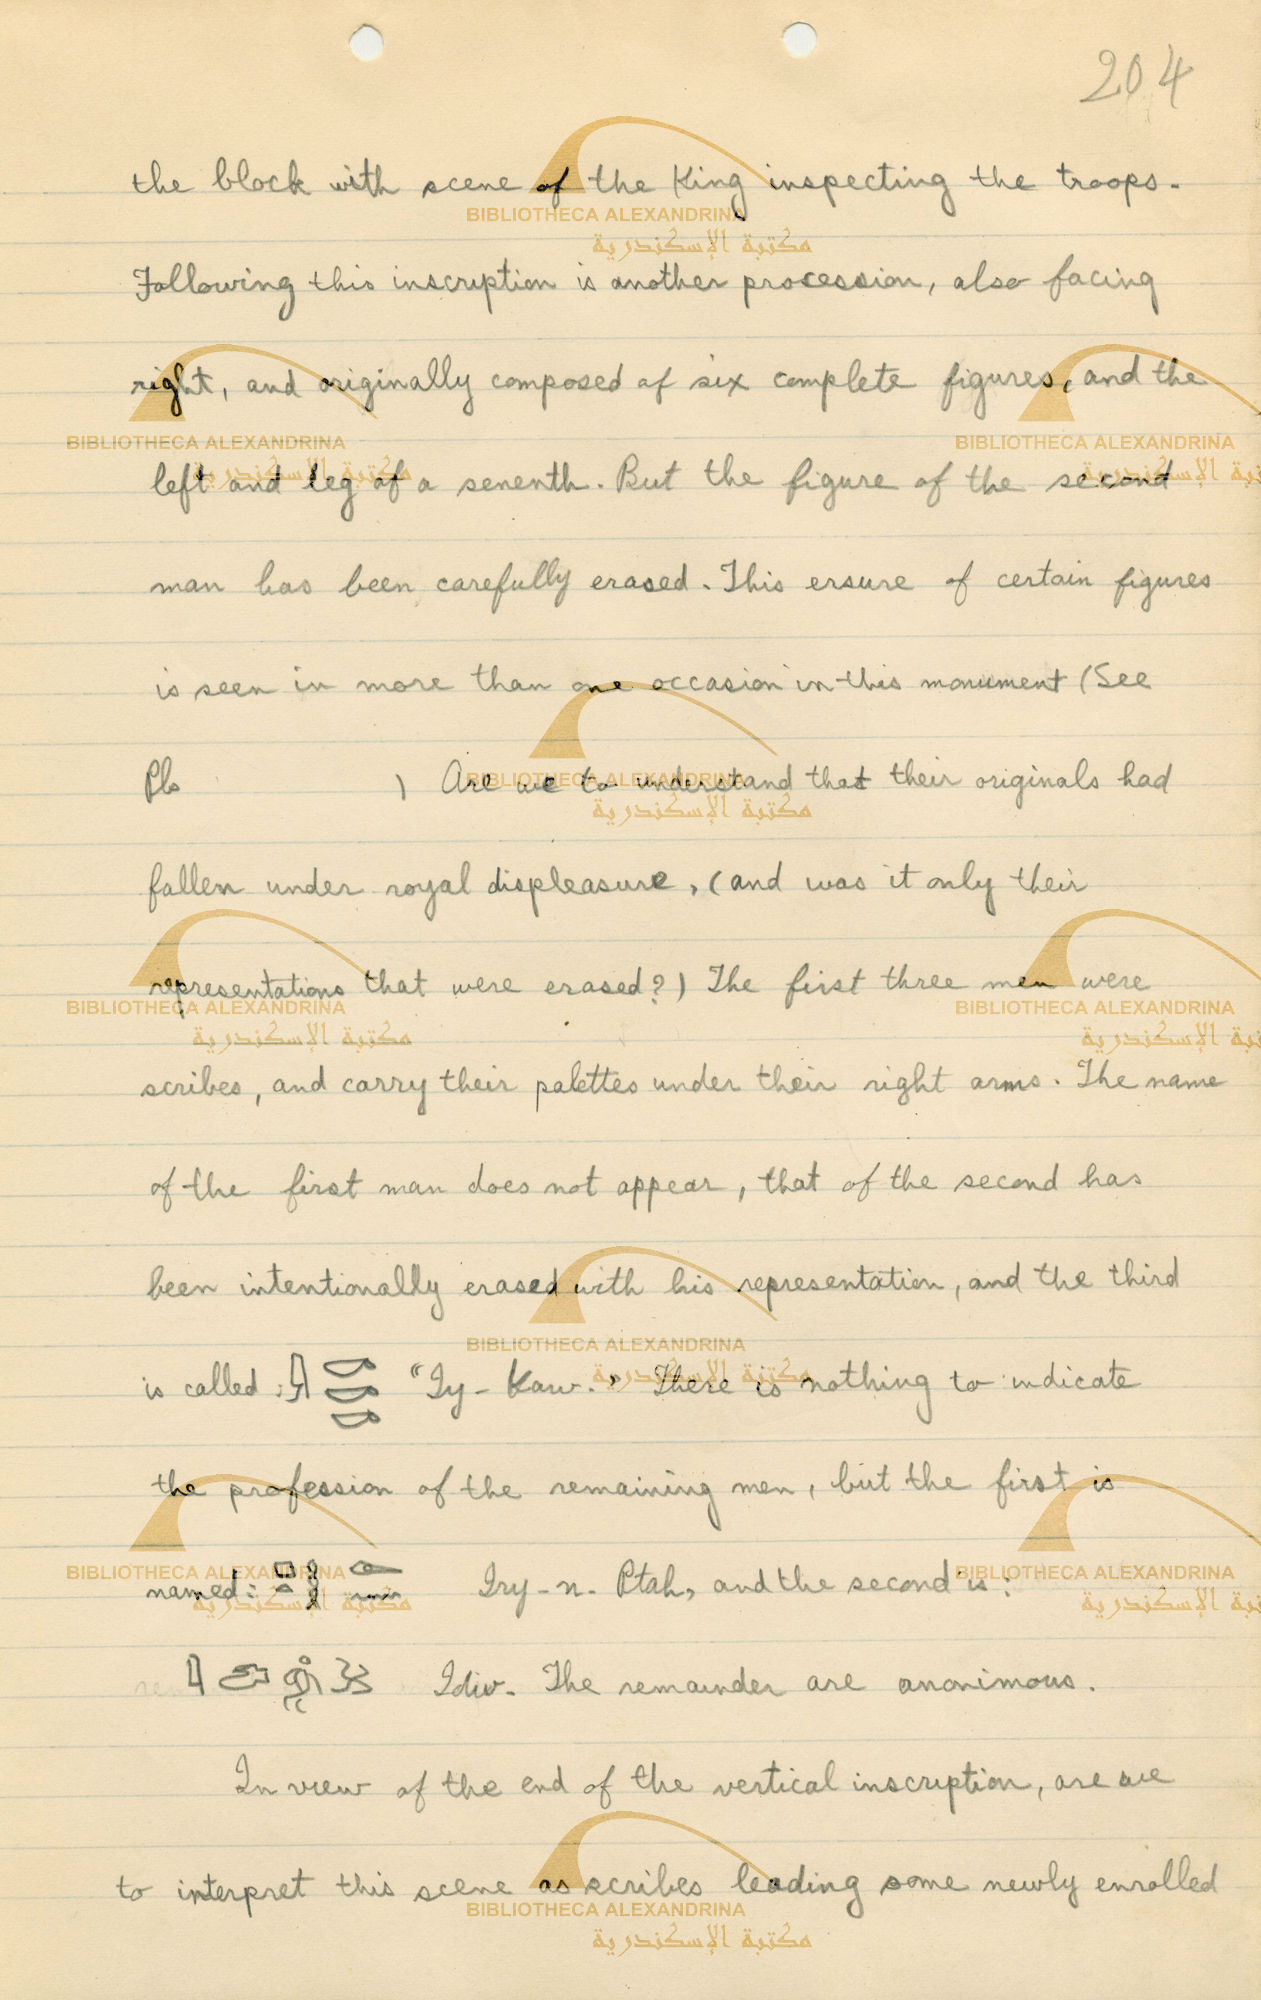 204
the block with scene of the King inspecting the troops.
Following this inscription is another procession, also facing
right, and originally composed of six complete figures, and the
left and leg of a senenth. But the figure of the second
man has been carefully erased. This ersure of certain figures
is seen in more than one occasion in this monument (See
Pls ) Are we to understand that their originals had
fallen under royal displeasure, (and was it only their
representations that were erased?) The first three men were
scribes, and carry their palettes under their right arms. The name
of the first man does not appear, that of the second has
been intentionally erased with his representation, and the third
is called : "Iy-Kaw." There is nothing to indicate
the profession of the remaining men, but the first is
named: Iry-n-Ptah, and the second is:
Idiw. The remainder are anonimous.
In view of the end of the vertical inscription, are we
to interpret this scene as scribes leading some newly enrolled
BIBLIOTHECA ALEXANDRINA
مكتبة الإسكندرية